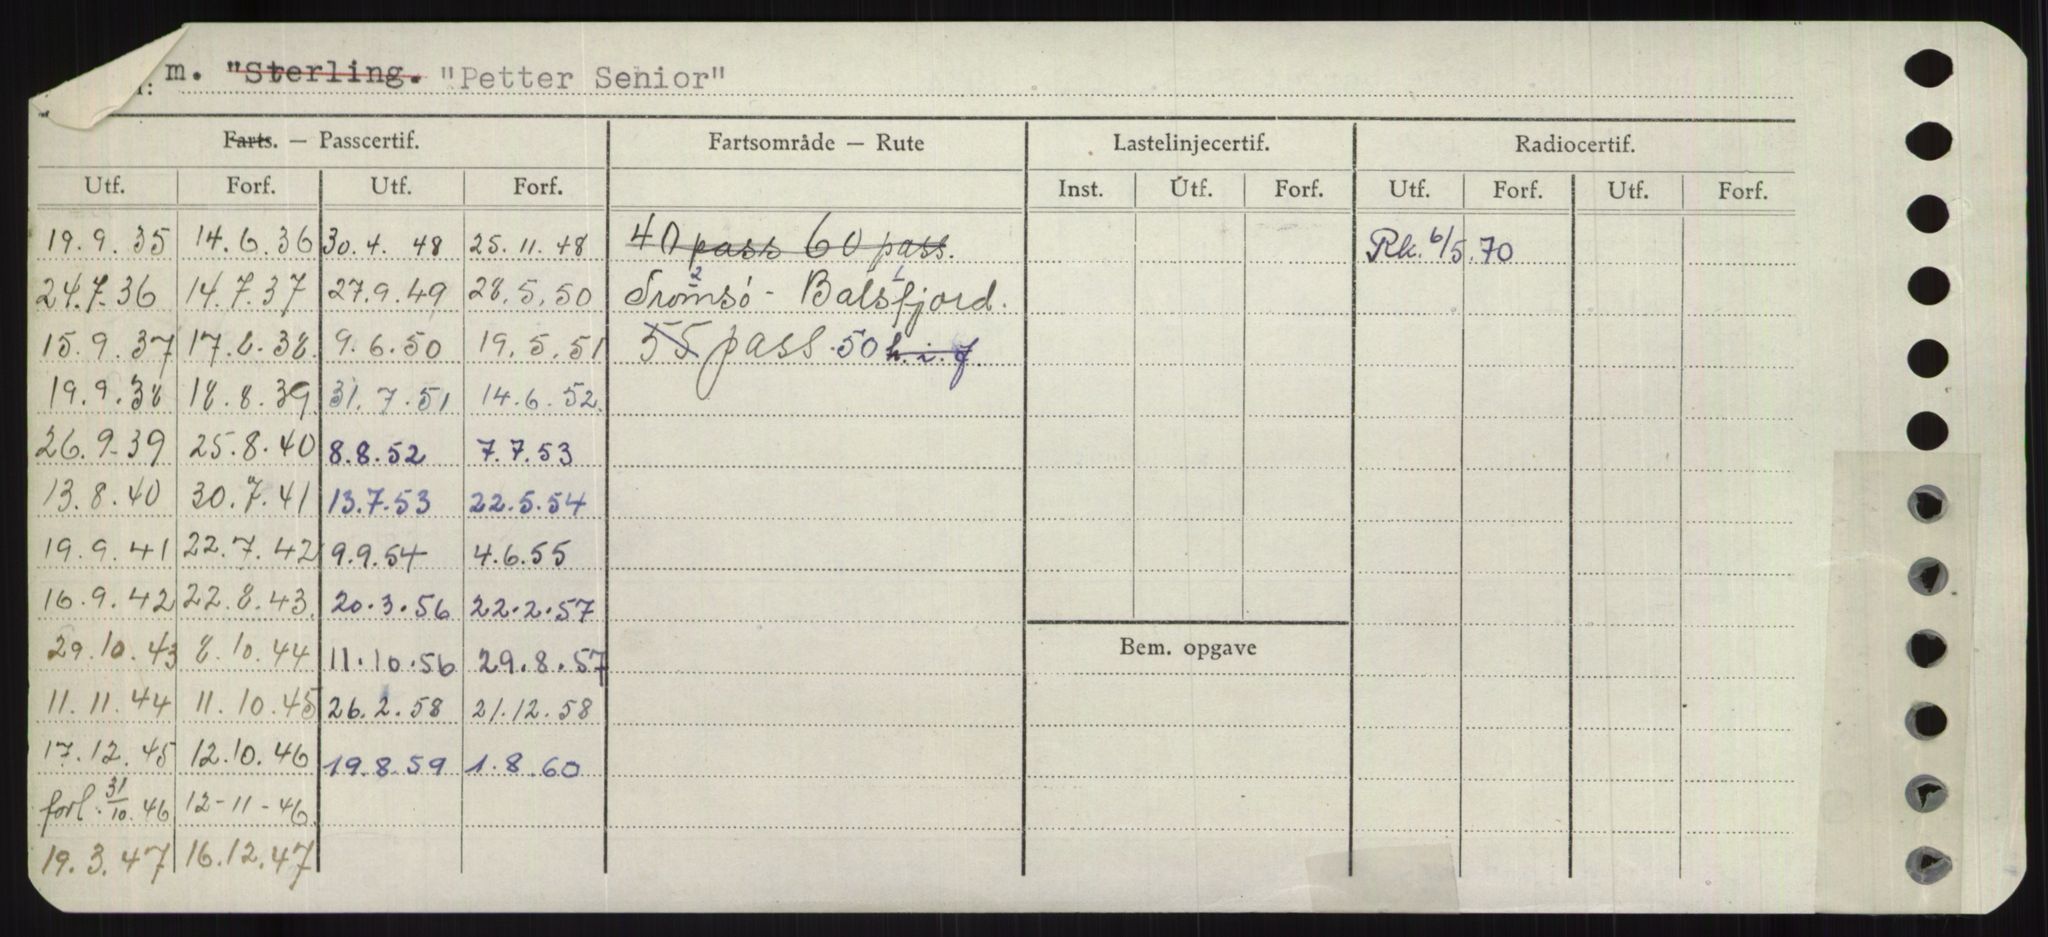 m. "Sterling. "Petter Senior"
Farts. — Passcertif. Fartsområde — Rute Lastelinjecertif. Radiocertif.
Utf. Forf. Utf. Forf. Inst. Utf. Forf. Utf. Forf. Utf. Forf.
19.9.35 14.6.36 30.4.48 25.11.48 40 pass 60 pass. Rk. 6/5.70
24.7.36 14.7.37 27.9.49 28.5.50 Tromsö 2 - Balsfjord. 1
15.9.37 17.8.38. 9.6.50 19.5.51 55 pass. 50 h.i.f.
19.9.38 18.8.39 31.7.51 14.6.52.
26.9.39 25.8.40 8.8.52 7.7.53
13.8.40 30.7.41 13.7.53 22.5.54
19.9.41 22.7.42 9.9.54 4.6.55
16.9.42 22.8.43. 20.3.56 22.2.57
29.10.43 8.10.44 11.10.56 29.8.57
Bem. opgave
11.11.44 11.10.45 26.2.58 21.12.58
17.12.45 12.10.46 19.8.59 1.8.60
forl. 31/10.46 12-11-46
19.3.47 16.12.47